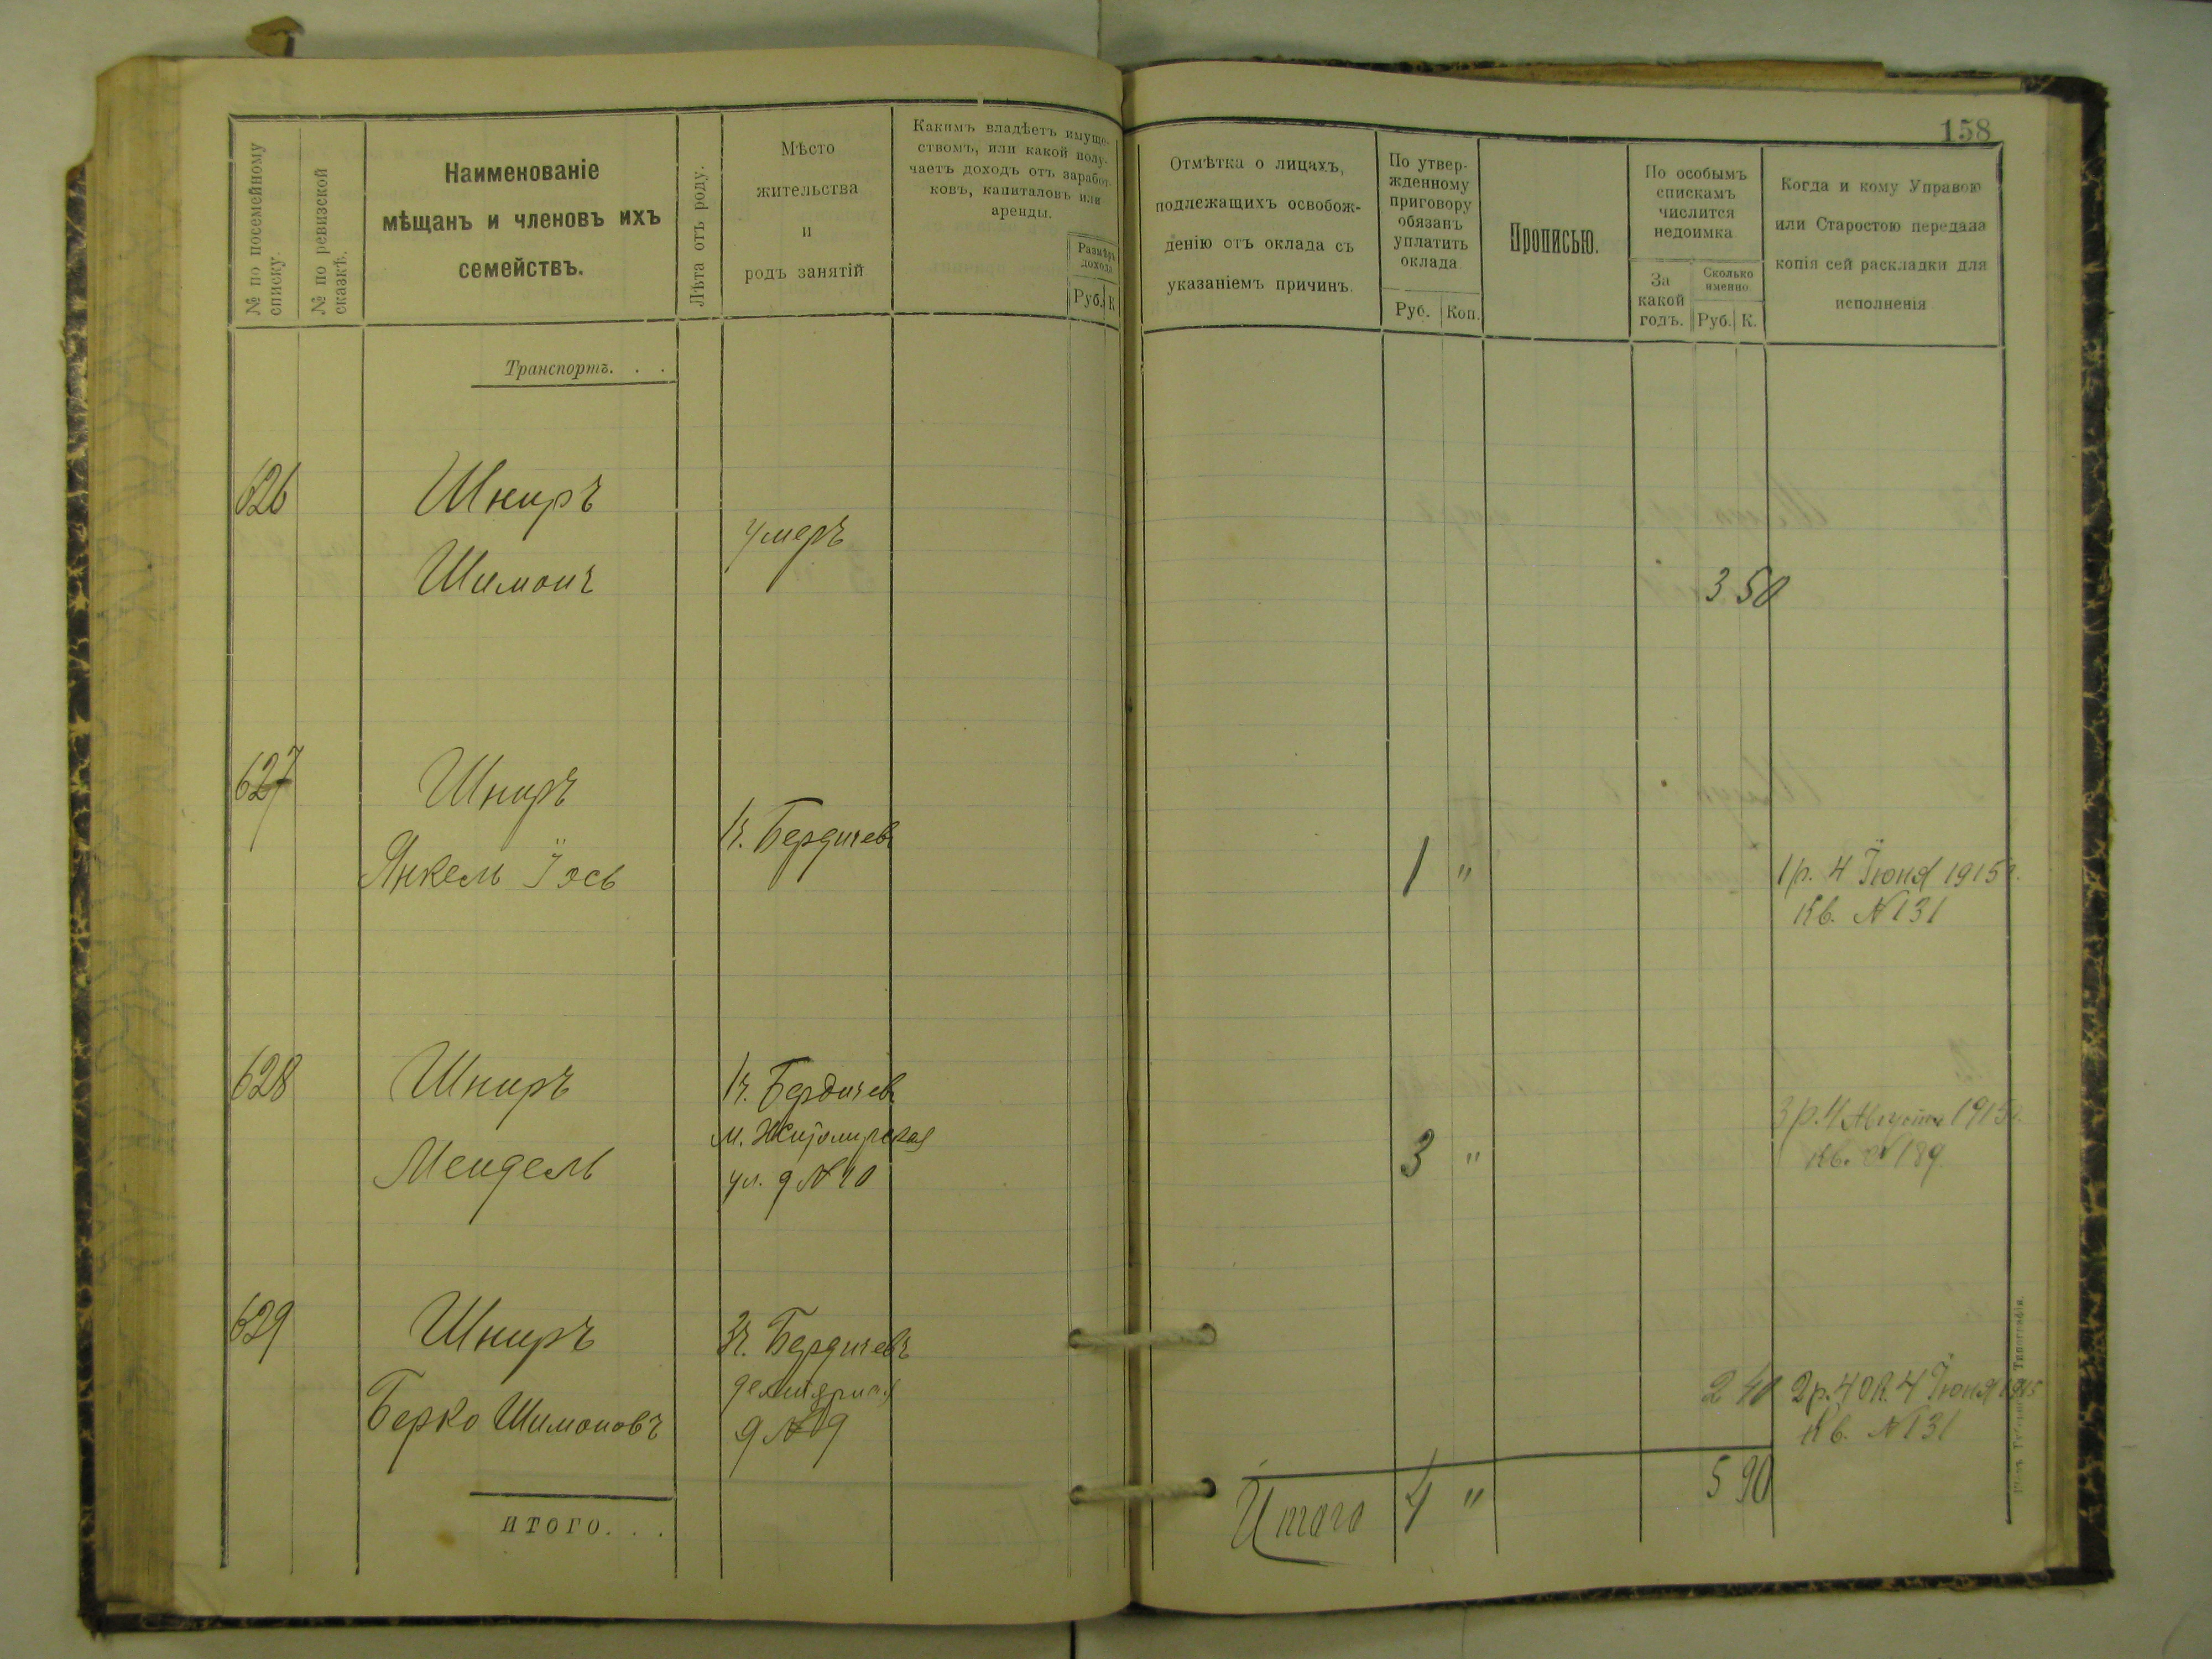 158
№ по посемейному списку.
№ по ревизской сказкѣ.
Наименованіе
мѣщанъ и членовъ ихъ
семействъ.
Лѣта отъ роду.
Мѣсто
жительства
и
родъ занятій
Какимъ владѣетъ имуще-
ствомъ, или какой полу-
чаетъ доходъ отъ заработ-
ковъ, капиталовъ или
аренды.
Размѣръ
дохода
Руб. К
Отмѣтка о лицахъ,
подлежащихъ освобож-
денію отъ оклада съ
указаніемъ причинъ.
По утвер-
жденному
приговору
обязанъ
уплатить
оклада
Руб. Коп.
Прописью.
По особымъ
спискамъ
числится
недоимка
За
какой
годъ.
Сколько
именно.
Руб. К.
Когда и кому Управою
или Старостою передана
копія сей раскладки для
исполненія
Транспортъ. . .
626 Шниръ
умеръ
Шимонъ
3 50
627 Шниръ
Бердичевъ
Янкель Іось
1 "
1 р. 4 Іюня 1915 г.
Кв. № 131
628 Шниръ
Бердичевъ
М. Житомирская
Мендель
ул. д № 40
3 "
3 р. 4 Августа 1915 г.
Кв. № 189
629 Шниръ
Бердичевъ
Берко Шимоновъ
д № 9
2 40
2 р. 40 к. 4 Іюня 1915
Кв. № 131
итого. . .
Итого 4 " 5 90